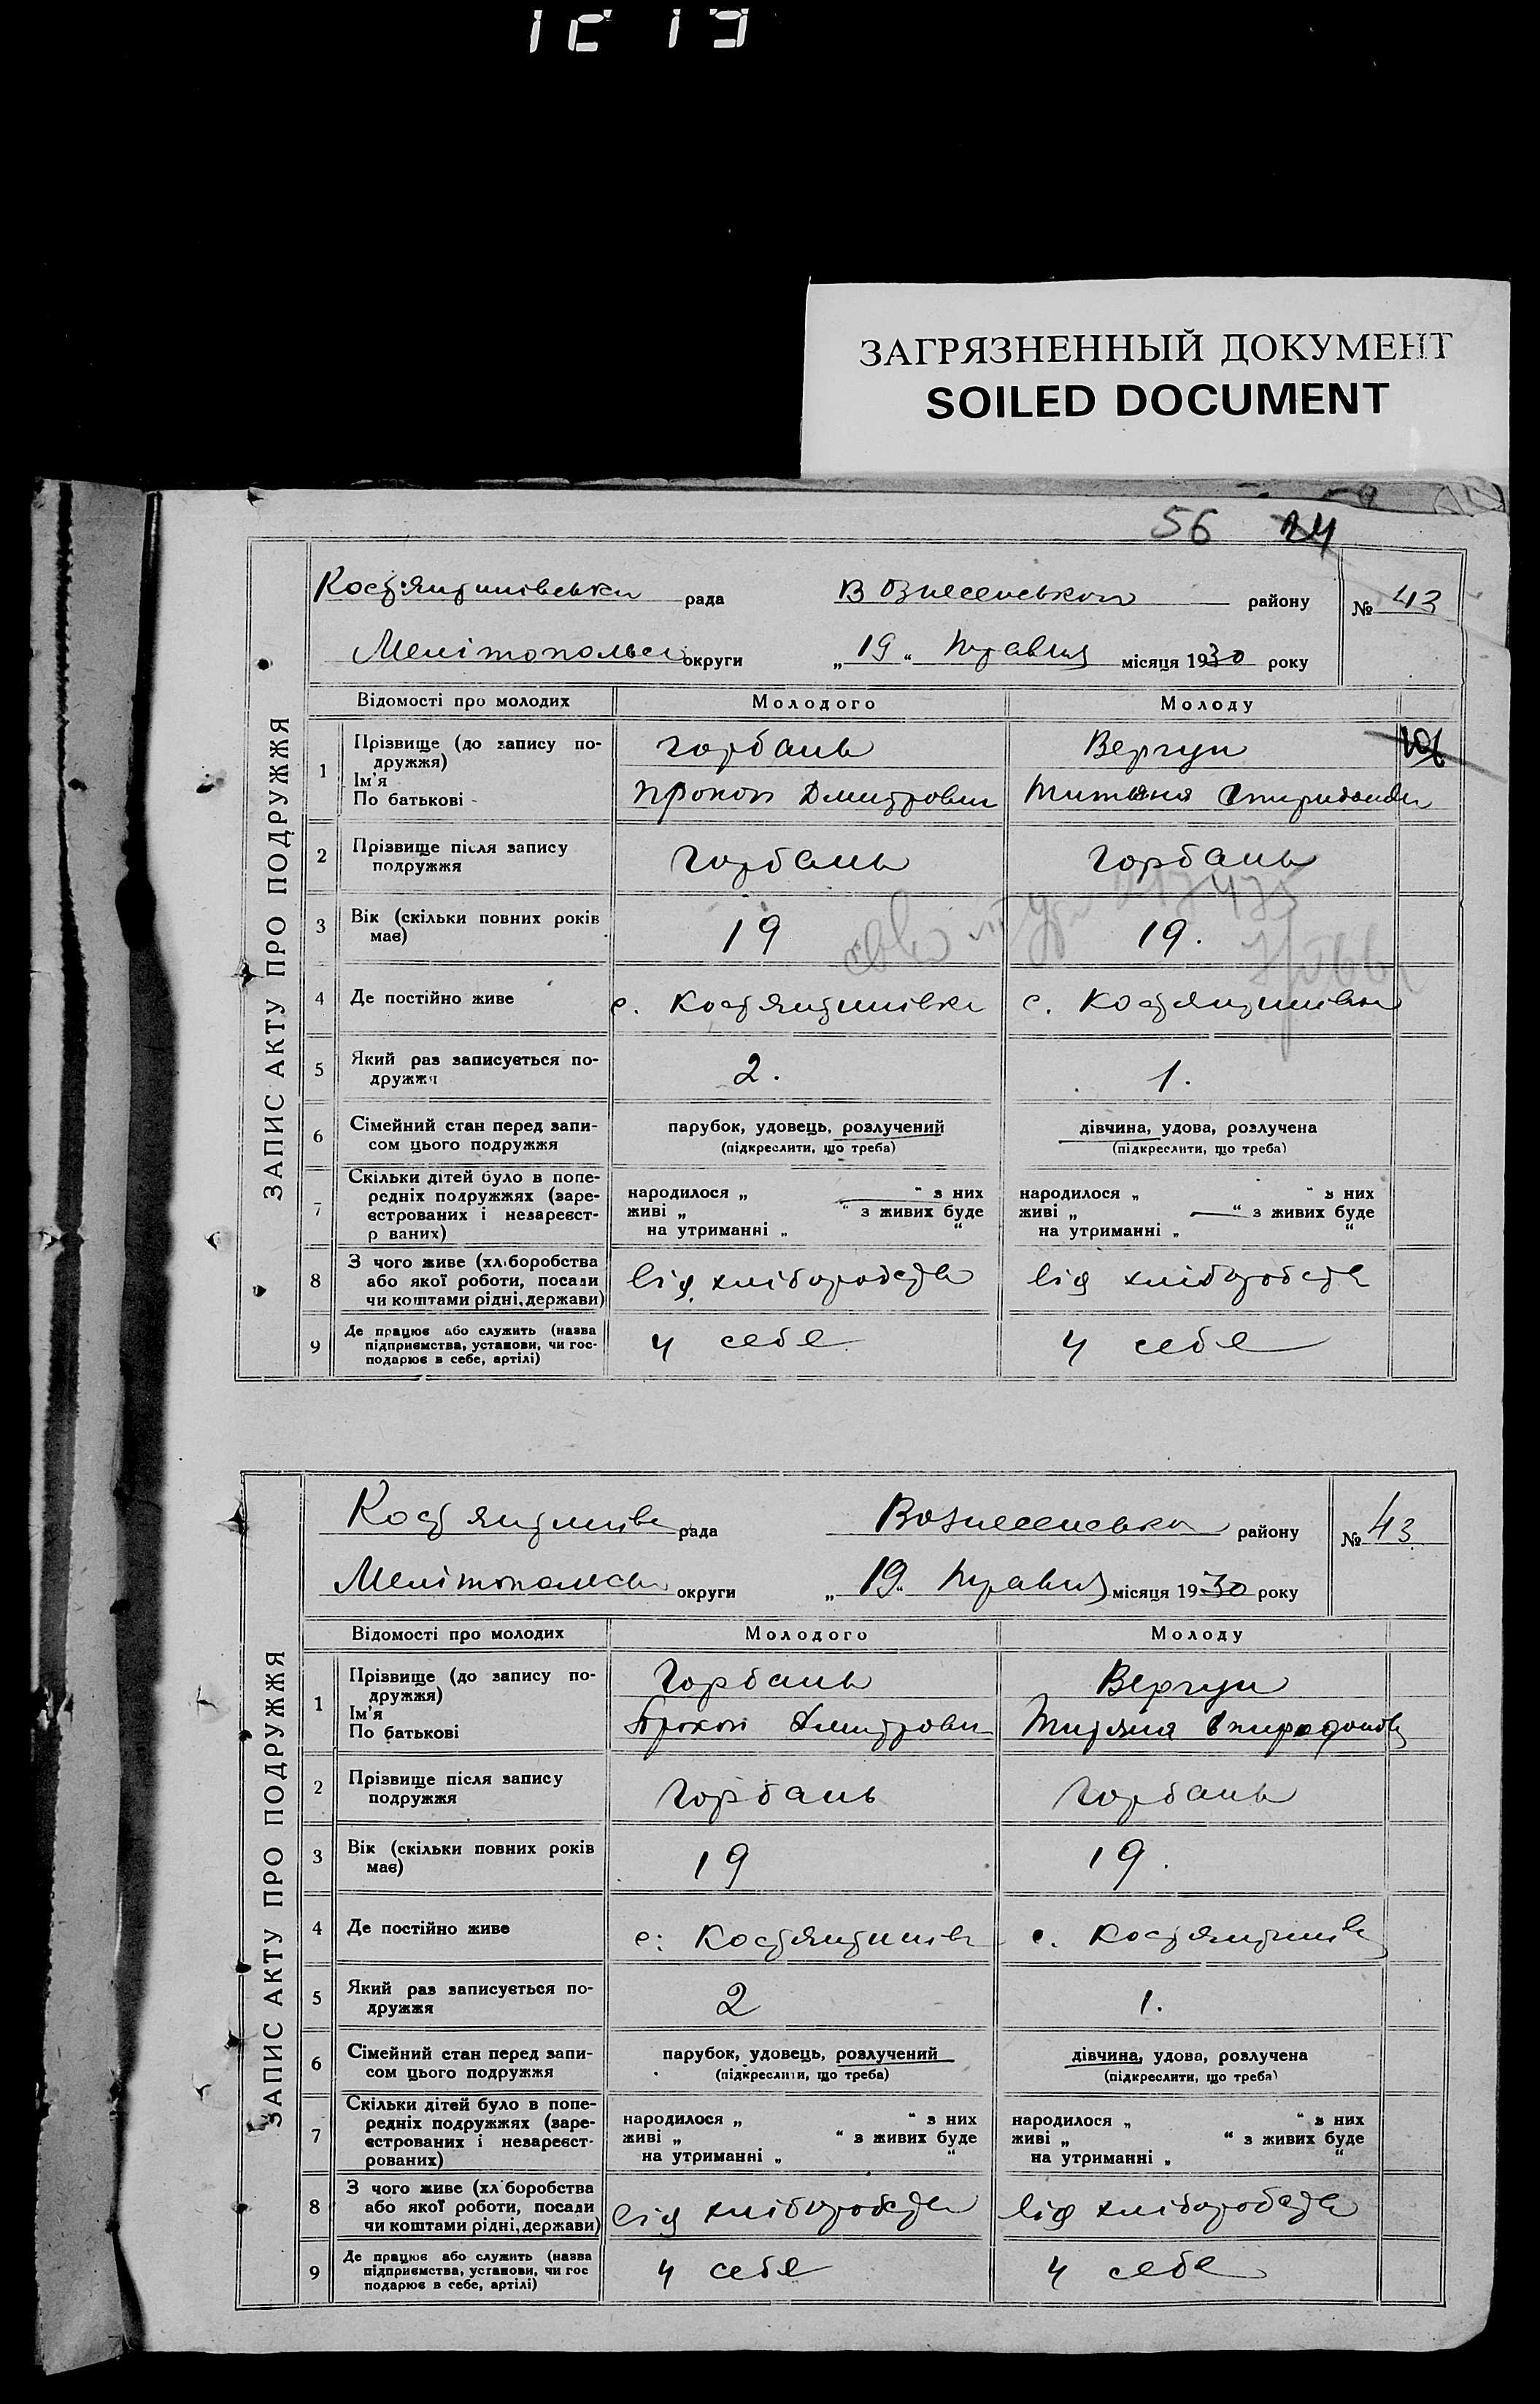 ЗАГРЯЗНЕННЫЙ ДОКУМЕНТ
SOILED DOCUMENT
56 24
ЗАПИС АКТУ ПРО ПОДРУЖЖЯ
Костянтинівська рада Вознесенського району № 43
Мелітопольсь округи „ 19 “ травня місяця 1930 року
Відомості про молодих Молодого Молоду
1 Прізвище (до запису по-
дружжя) Горбань Вергун
Ім'я
По батькові Прокоп Дмитрович Титяна Спиридонов
2 Прізвище після запису
подружжя Горбань Горбань
3 Вік (скільки повних років
має) 19 19.
4 Де постійно живе с. Костянтинівка с. Костянтинівка
5 Який раз записується по-
дружжя 2. 1.
6 Сімейний стан перед запи- парубок, удовець, розлучений дівчина, удова, розлучена
сом цього подружжя (підкреслити, що треба) (підкреслити, що треба)
7 Скільки дітей було в попе-
редніх подружжях (заре- народилося „ “ з них народилося „ “ з них
єстрованих і незареєст- живі „ “ з живих буде живі „ “ з живих буде
р ваних) на утриманні „ “ на утриманні „ “
8 З чого живе (хліборобства
або якої роботи, посади від хліборобства від хліборобств
чи коштами рідні, держави)
9 Де працює або служить (назва
підприємства, установи, чи гос- у себе у себе
подарює в себе, артілі)
ЗАПИС АКТУ ПРО ПОДРУЖЖЯ
Костянтинівс рада Вознесенська району № 43
Мелітопольсь округи „ 19 “ травня місяця 1930 року
Відомості про молодих Молодого Молоду
1 Прізвище (до запису по-
дружжя) Горбань Вергун
Ім'я
По батькові Прокоп Дмитрович Титяна Спиридонов
2 Прізвище після запису
подружжя Горбань Горбань
3 Вік (скільки повних років
має) 19 19.
4 Де постійно живе с. Костянтинів с. Костянтинів
5 Який раз записується по-
дружжя 2 1.
6 Сімейний стан перед запи- парубок, удовець, розлучений дівчина, удова, розлучена
сом цього подружжя (підкреслити, що треба) (підкреслити, що треба)
7 Скільки дітей було в попе-
редніх подружжях (заре- народилося „ “ з них народилося „ “ з них
єстрованих і незареєст- живі „ “ з живих буде живі „ “ з живих буде
рованих) на утриманні „ “ на утриманні „ “
8 З чого живе (хл боробства
або якої роботи, посади від хліборобства від хліборобства
чи коштами рідні, держави)
9 Де працює або служить (назва
підприємства, установи, чи гос у себе у себе
подарює в себе, артілі)